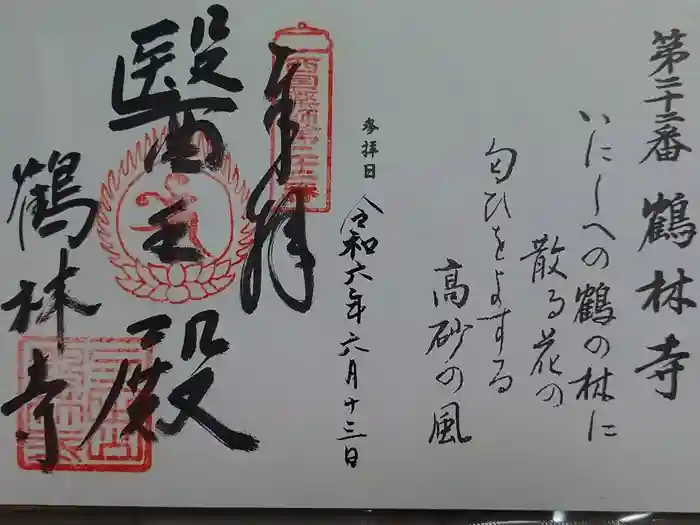 第二十二番 鶴林寺
いにしへの鶴の林に
散る花の
匂ひをよする
高砂の風
参拝日
令和六年六月十三日
奉拝
西国薬師第二十二番
醫王殿
鶴林寺